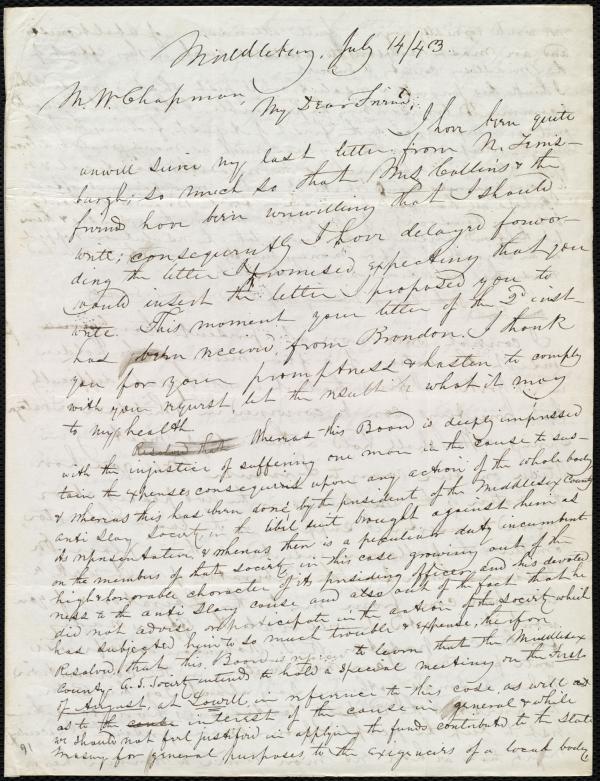 Middlebury, July 14/43.
M. W. Chapman,
My Dear Friend;
I have been quite
unwell since my last letter, from N. Ferris-
burgh, so much so that Mrs Collins & the
friends have been unwilling that I should
write; consequently I have delayed forwar-
ding the letter I promised, expecting that you
would insert the letter I proposed you to
write. This moment your letter of the 2d inst-
has been received, from Brandon. I thank
you for your promptness & hasten to comply
with your request, let the result be what it may
to my health
Resolved that Whereas this Board is deeply impressed
with the injustice of suffering one man in the cause to sus-
tain the expenses consequent upon any action of the whole body
& whereas this has been done by the president of the Middlesex County
anti Slav Society in the libil suit brought against him as
its representative & whereas there is a peculiar duty incumbent
on the members of that society in this case growing out of the
high & honorable character of its presiding officer, and his devoted-
ness to the anti Slavy cause and also out of the fact that he
did not advise or participate in the action of the Society which
has subjected him to so much trouble & expense, therefore
Resolved, that this Board to learn that the Middlesex
County A. S. Society intends to hold a special meeting on the first
of August, at Lowell, in reference to this case, as well as
as to the cause interest of the cause in general & while
we should not feel justified in applying the funds contributed to the State
Treasury for general purposes to the exigencies of a local body
91